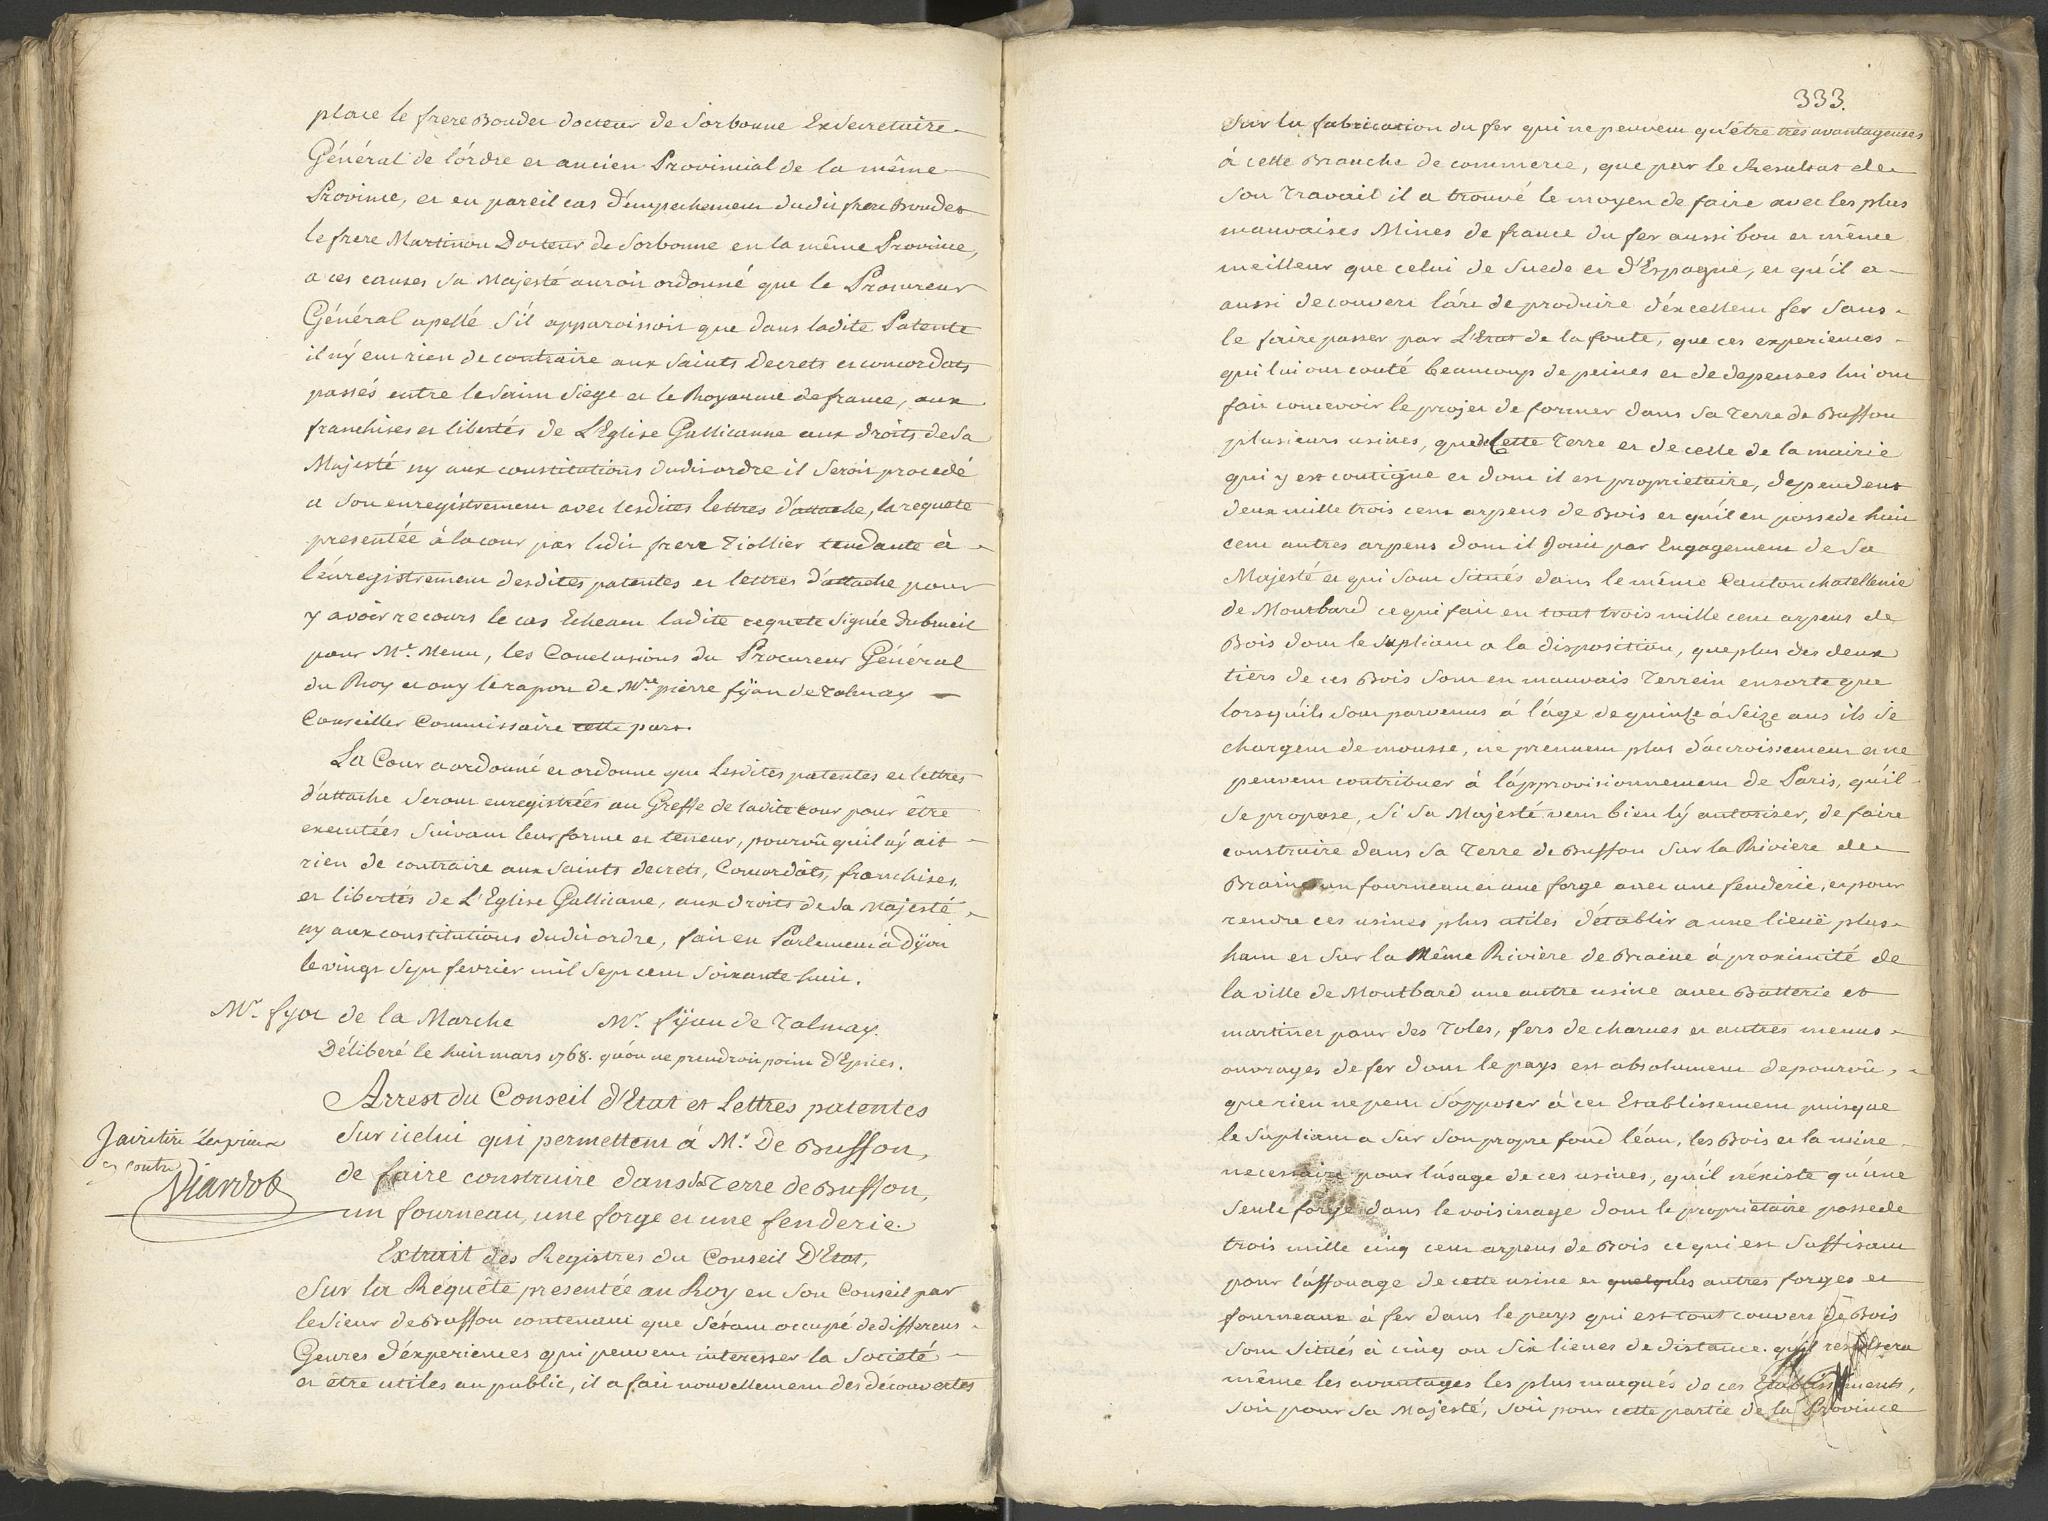 place le frere Boudet docteur de Sorbonne Exsecretaire
Général de l'órdre et ancien Provincial de la même
Province, et en pareil cas d'émpechement dudit frere Boudet
le frere Martinon Docteur de Sorbonne en la même Province,
a ces causes sa Majesté auroit ordonné que le Procureur
Général apellé s'il apparoissoit que dans ladite Patente
il n'ÿ eut rien de contraire aux saints Decrets et concordats
passés entre le saint Siege et le Royaume de france, aux
franchises et libertés de L'Eglise Gallicanne aux droits de sa
Majesté ny aux constitutions dudit ordre il seroit procedé
a son enregistrement avec lesdites lettres d'attache, la requete
presentée à la cour par ledit frere Tiollier tendante à
l'énregistrement desdites patentes et lettres d'attache pour
y avoir recours le cas Echeant ladite requete signée dubreuil
pour Mr. Menu, les Conclusions du Procureur Général
du Roy et ouy le raport de Mre. pierre fÿan de Talmay
Conseiller Commissaire cette part.
La Cour a ordonné et ordonne que lesdites patentes et lettres
d'attache seront enregistrées au Greffe de ladite cour pour être
executées suivant leur forme et teneur, pourvû qu'il n'ÿ ait
rien de contraire aux saints decrets, Concordâts, franchises,
et libertés de L'Eglise Gallicane, aux droits de sa Majesté,
ny aux constitutions dudit ordre, fait en Parlement à Dÿon
le vingt sept fevrier mil sept cent soixante huit.
Mr. fyot de la Marche Mr. fÿan de Talmay.
Déliberé le huit mars 1768. qu'ón ne prendroit point D'Epices.
Arrest du Conseil d'Etat et Lettres patentes
sur icelui qui permettent à Mr. De Buffon,
de faire construire dans sa Terre de Buffon,
un fourneau, une forge et une fenderie.
J'ai retiré
Viardot
Extrait des Registres du Conseil D'Etat,
Sur la Requête presentée au Roy en son Conseil par
le sieur de Buffon contenant que s'étant occupé de differens
Genres d'éxperiences qui peuvent interesser la societé
et être utiles au public, il a fait nouvellement des découvertes
333.
sur la fabrication du fer qui ne peuvent qu'être très avantageuses
à cette Branche de commerce, que par le Resultat de
son travail il a trouvé le moyen de faire avec les plus
mauvaises Mines de france du fer aussi bon et même
meilleur que celui de Suede et d'Espagne, et qu'il a
aussi decouvert l'árt de produire d'éxcellent fer sans
le faire passer par L'Etat de la fonte, que ces experiences
qui lui ont couté beaucoup de peines et de depenses lui ont
fait concevoir le projet de former dans sa Terre de Buffon
plusieurs usines, que de Cette Terre et de celle de la mairie
qui y est contigue et dont il est proprietaire, dependent
deux mille trois cent arpens de Bois et qu'il en possede huit
cent autres arpens dont il Jouit par Engagement de Sa
Majesté et qui sont situés dans le même Canton chatellenie
de Montbard ce qui fait en tout trois mille cent arpens de
Bois dont le supliant a la disposition, que plus des deux
tiers de ces Bois sont en mauvais Terrein ensorte que
lorsqu'ils sont parvenus à l'áge de quinze à seize ans ils se
chargent de mousse, ne prennent plus d'accroissement et ne
peuvent contribuer à l'ápprovisionnement de Paris, qu'il
se propose, si sa Majesté veut bien l'ÿ autoriser, de faire
construire dans sa Terre de Buffon sur la Riviere de
Braine un fourneau et une forge avec une fenderie, et pour
rendre ces usines plus utiles d'établir a une lieuë plus
haut et sur la Même Riviere de Braine à proximité de
la ville de Montbard une autre usine avec Batterie et
martinet pour des Toles, fers de charues et autres menus
ouvrages de fer dont le pays est absolument depourvû,
que rien ne peut s'opposer à cet Etablissement puisque
le supliant a sur son propre fond l'éau, les Bois et la mine
necessaire pour l'úsage de ces usines, qu'il n'éxiste qu'une
seule forge dans le voisinage dont le propriétaire possede
trois mille cinq cent arpens de Bois ce qui est suffisant
pour l'áffouage de cette usine et quelques les autres forges et
fourneaux à fer dans le pays qui est tout couvert de Bois
sont situés à cinq ou six lieues de distance. qu'il resultera
même les avantages les plus marqués de ces Etablissements,
soit pour sa Majesté, soit pour cette partie de la Province